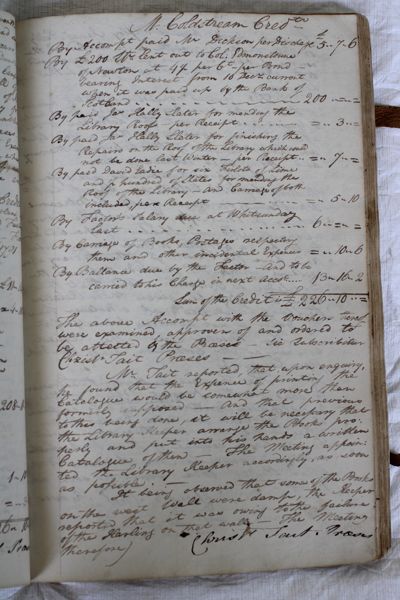 Mr. Coldstream Credr.
By Accompt paid Mr Dickson per Discharge £ 5 .. 7 .. 6
By £200 Str. lent out to Col: Edmonstoune
of Newton at p Ct. per Bond
bearing Interest from 10 Decr. current
when it was paid up by the Bank of
Scotland 200 .. = .. =
By paid Jas Hally Slater for mending the
Library Roof per Receipt = .. 3 .. =
By paid Mr Hally Slater for finishing the
Repairs on the Roof of the Library which could
not be done last Winter - per Receipt = .. 7 .. =
By paid David Eadie for six Firlots of Lime
and a hundred of Slates for mending the
Roof of the Library - and Carriage of both
included per Receipt = .. 5 .. 10
By Factors Salary due at Whitsunday
last 6 .. = .. =
By Carriage of Books, Postages respecting
them and other incidental Expences = .. 10 .. 6
By Ballance due by the Factor and to be
carried to his Charge in next Acct. 13 .. 16 .. 2
Sum of the Credit is £ 226 .. 10 .. =
The above Accompt with the Vouchers
were examined approven of and ordered to
be attested by the Preses Sic Subscribitur
Christ. Tait Preses
Mr. Tait reported, that upon enquiry,
he found that the Expence of printing the
Catalogue would be somewhat more than
formerly supposed And that previous
to this being done it will be necessary that
the Library Keeper arrange the Books pro:
perly and put into his hands a written
Catalogue of them The Meeting appoin:
ted the Library Keeper accordingly as soon
as possible.
It being observed that some of the Books
on the west Wall were damp, the Keeper
reported that it was owing to the failure
of the Harling on that wall - The Meeting
therefore
Christ. Tait. Preses